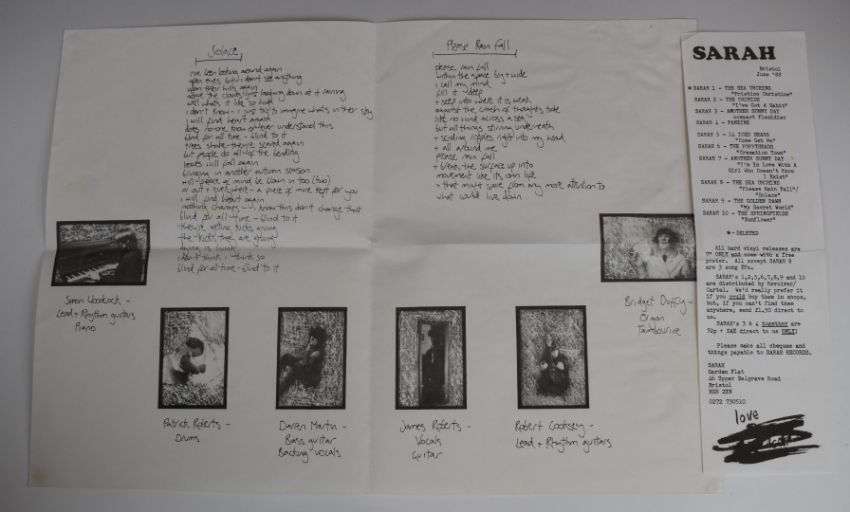 Solace
i've been looking around again
open eyes but i don't see anything
upon their hills again
above the clouds, just looking down at it raining
well what's it like so hard
i don't know - i just try to imagine what's in their sky
i will find heart again
does no-one know or ever understand this
blind for all time - blind to it
trees shake - they're scared again
but people do all of the bending
leaves will fall again
bringing in another autumn season
will peace of mind be blown in too (two)
or out + everywhere - a piece of mine kept for you
i will find heart again
nothing changes - i know this don't change that
blind for all time - blind to it
they're getting kicks giving
the kicks they are giving
living
i don't think i think so
blind for all time - blind to it
Please Rain Fall
please rain fall
within the space big + wide
i call my mind
fill it deep
+ seep into where it is weak
against the clash of thoughts take
like no wind across a sea
but all things stirring underneath
+ sending ripples right into my head
+ all around me
please rain fall
+ break the surface up into
movement like its own life
+ that might save from any more attention to
what could live down
Simon Woodcock -
Lead + Rhythm guitars
Piano
Bridget Duffy -
Organ
Tambourine
Patrick Roberts -
Drums
Darren Martin -
Bass guitar
Backing vocals
James Roberts -
Vocals
Guitar
Robert Cooksey -
Lead + Rhythm guitars
SARAH
Bristol
June '88
*SARAH 1 - THE SEA URCHINS
"Pristine Christine"
SARAH 2 - THE ORCHIDS
"I've Got A Habit"
SARAH 3 - ANOTHER SUNNY DAY
compact flexidisc
SARAH 4 - FANZINE
SARAH 5 - 14 ICED BEARS
"Come Get Me"
SARAH 6 - THE POPPYHEADS
"Cremation Town"
SARAH 7 - ANOTHER SUNNY DAY
"I'm In Love With A
Girl Who Doesn't Know
I Exist"
SARAH 8 - THE SEA URCHINS
"Please Rain Fall"/
"Solace"
SARAH 9 - THE GOLDEN DAWN
"My Secret World"
SARAH 10 - THE SPRINGFIELDS
"Sunflower"
*- DELETED
All hard vinyl releases are
7" ONLY and come with a free
poster. All except SARAH 8
are 3 song EPs.
SARAH's 1,2,5,6,7,8,9 and 10
are distributed by Revolver/
Cartel. We'd really prefer it
if you could buy them in shops,
but, if you can't find them
anywhere, send £1.50 direct to
us.
SARAH's 3 & 4 together are
50p + SAE direct to us ONLY!
Please make all cheques and
things payable to SARAH RECORDS.
SARAH
Garden Flat
46 Upper Belgrave Road
Bristol
BS8 2XN
0272 730510
love